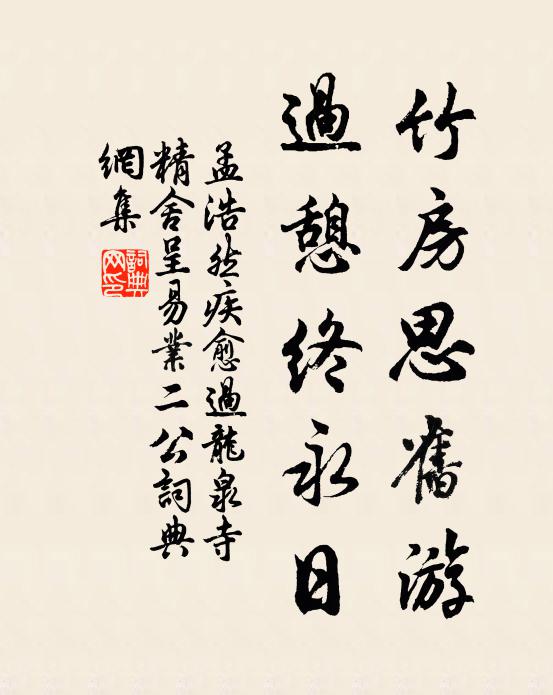 竹房思舊游
過憩終永日
孟浩然疾愈過龍泉寺
精舍呈易業二公詞典
網集
詞典網印